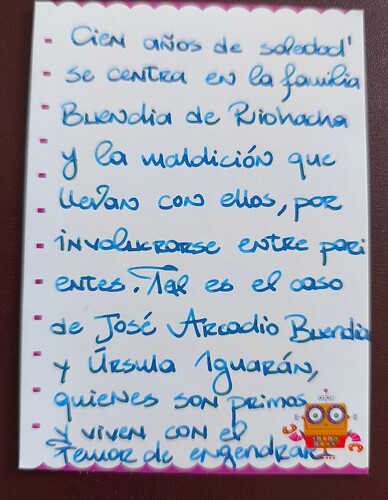 Cien años de soledad'
se centra en la familia
Buendia de Riohacha
y la maldición que
llevan con ellos, por
involucrarse entre pari
entes. Tal es el caso
de José Arcadio Buendia
y Úrsula Iguarán,
quienes son primos
y viven con el
temor de engendrar